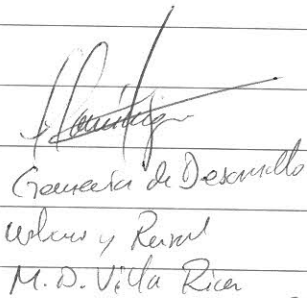 Gerencia de Desarrollo
Urbano y Rural
M. D. Villa Rica